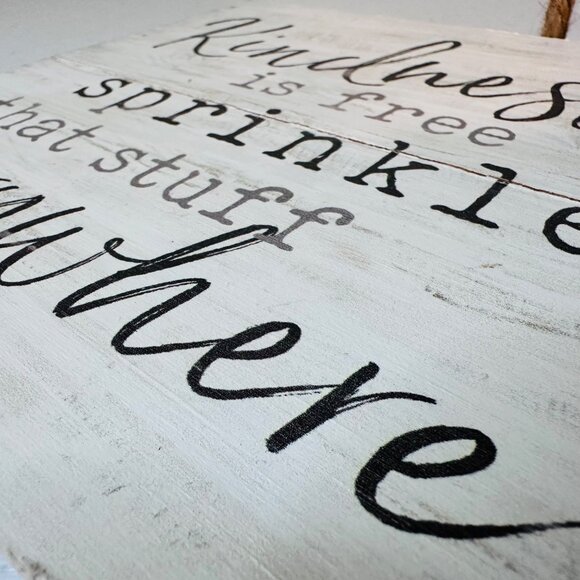 Kindness
is free
sprinkle
that stuff
everywhere